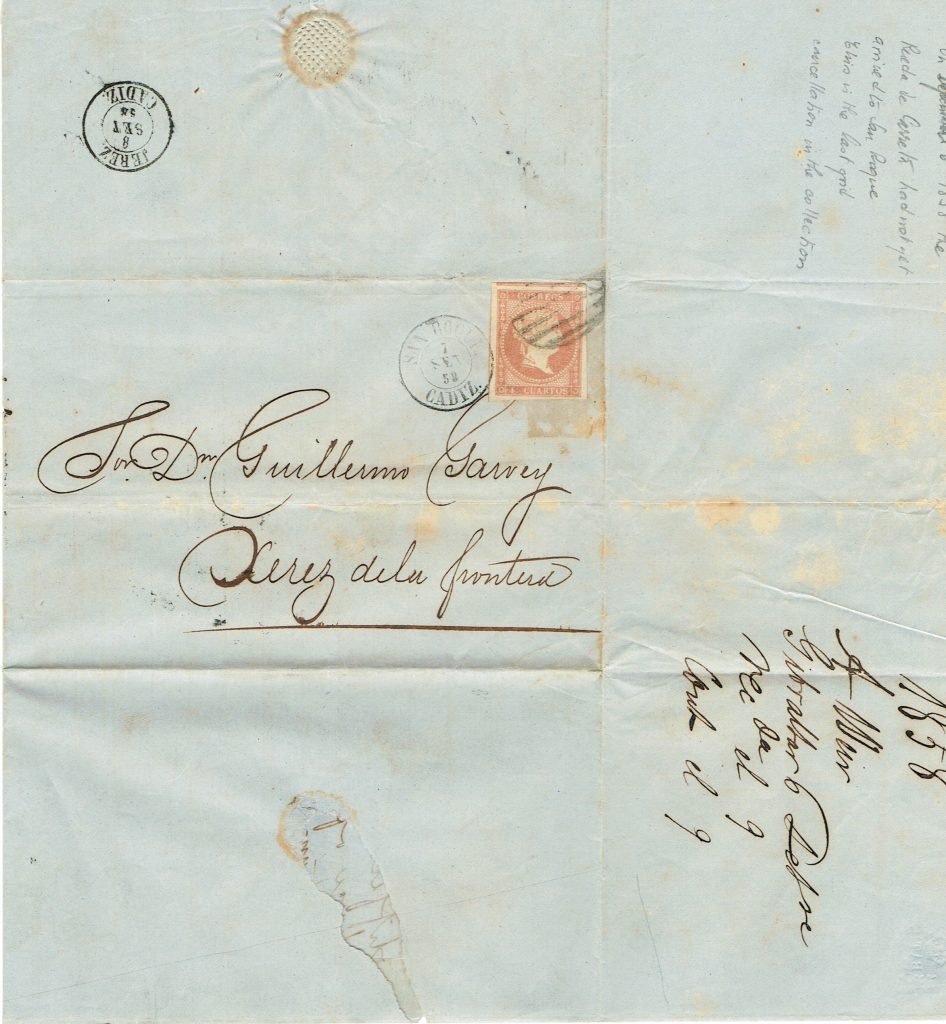 JEREZ
8
SET
58
CADIZ
1858
Rueda de Carreta had not yet
arrived to San Roque
this is the last grid
cancellation in the collection
CORREOS
4 CUARTOS
SAN ROQUE
7
SET
58
CADIZ.
Sor. Dn. Guillermo Garvey
Xerez de la frontera
1858
A Weir
Gibraltar 6 Setbre
Rec da el 9
Cont el 9